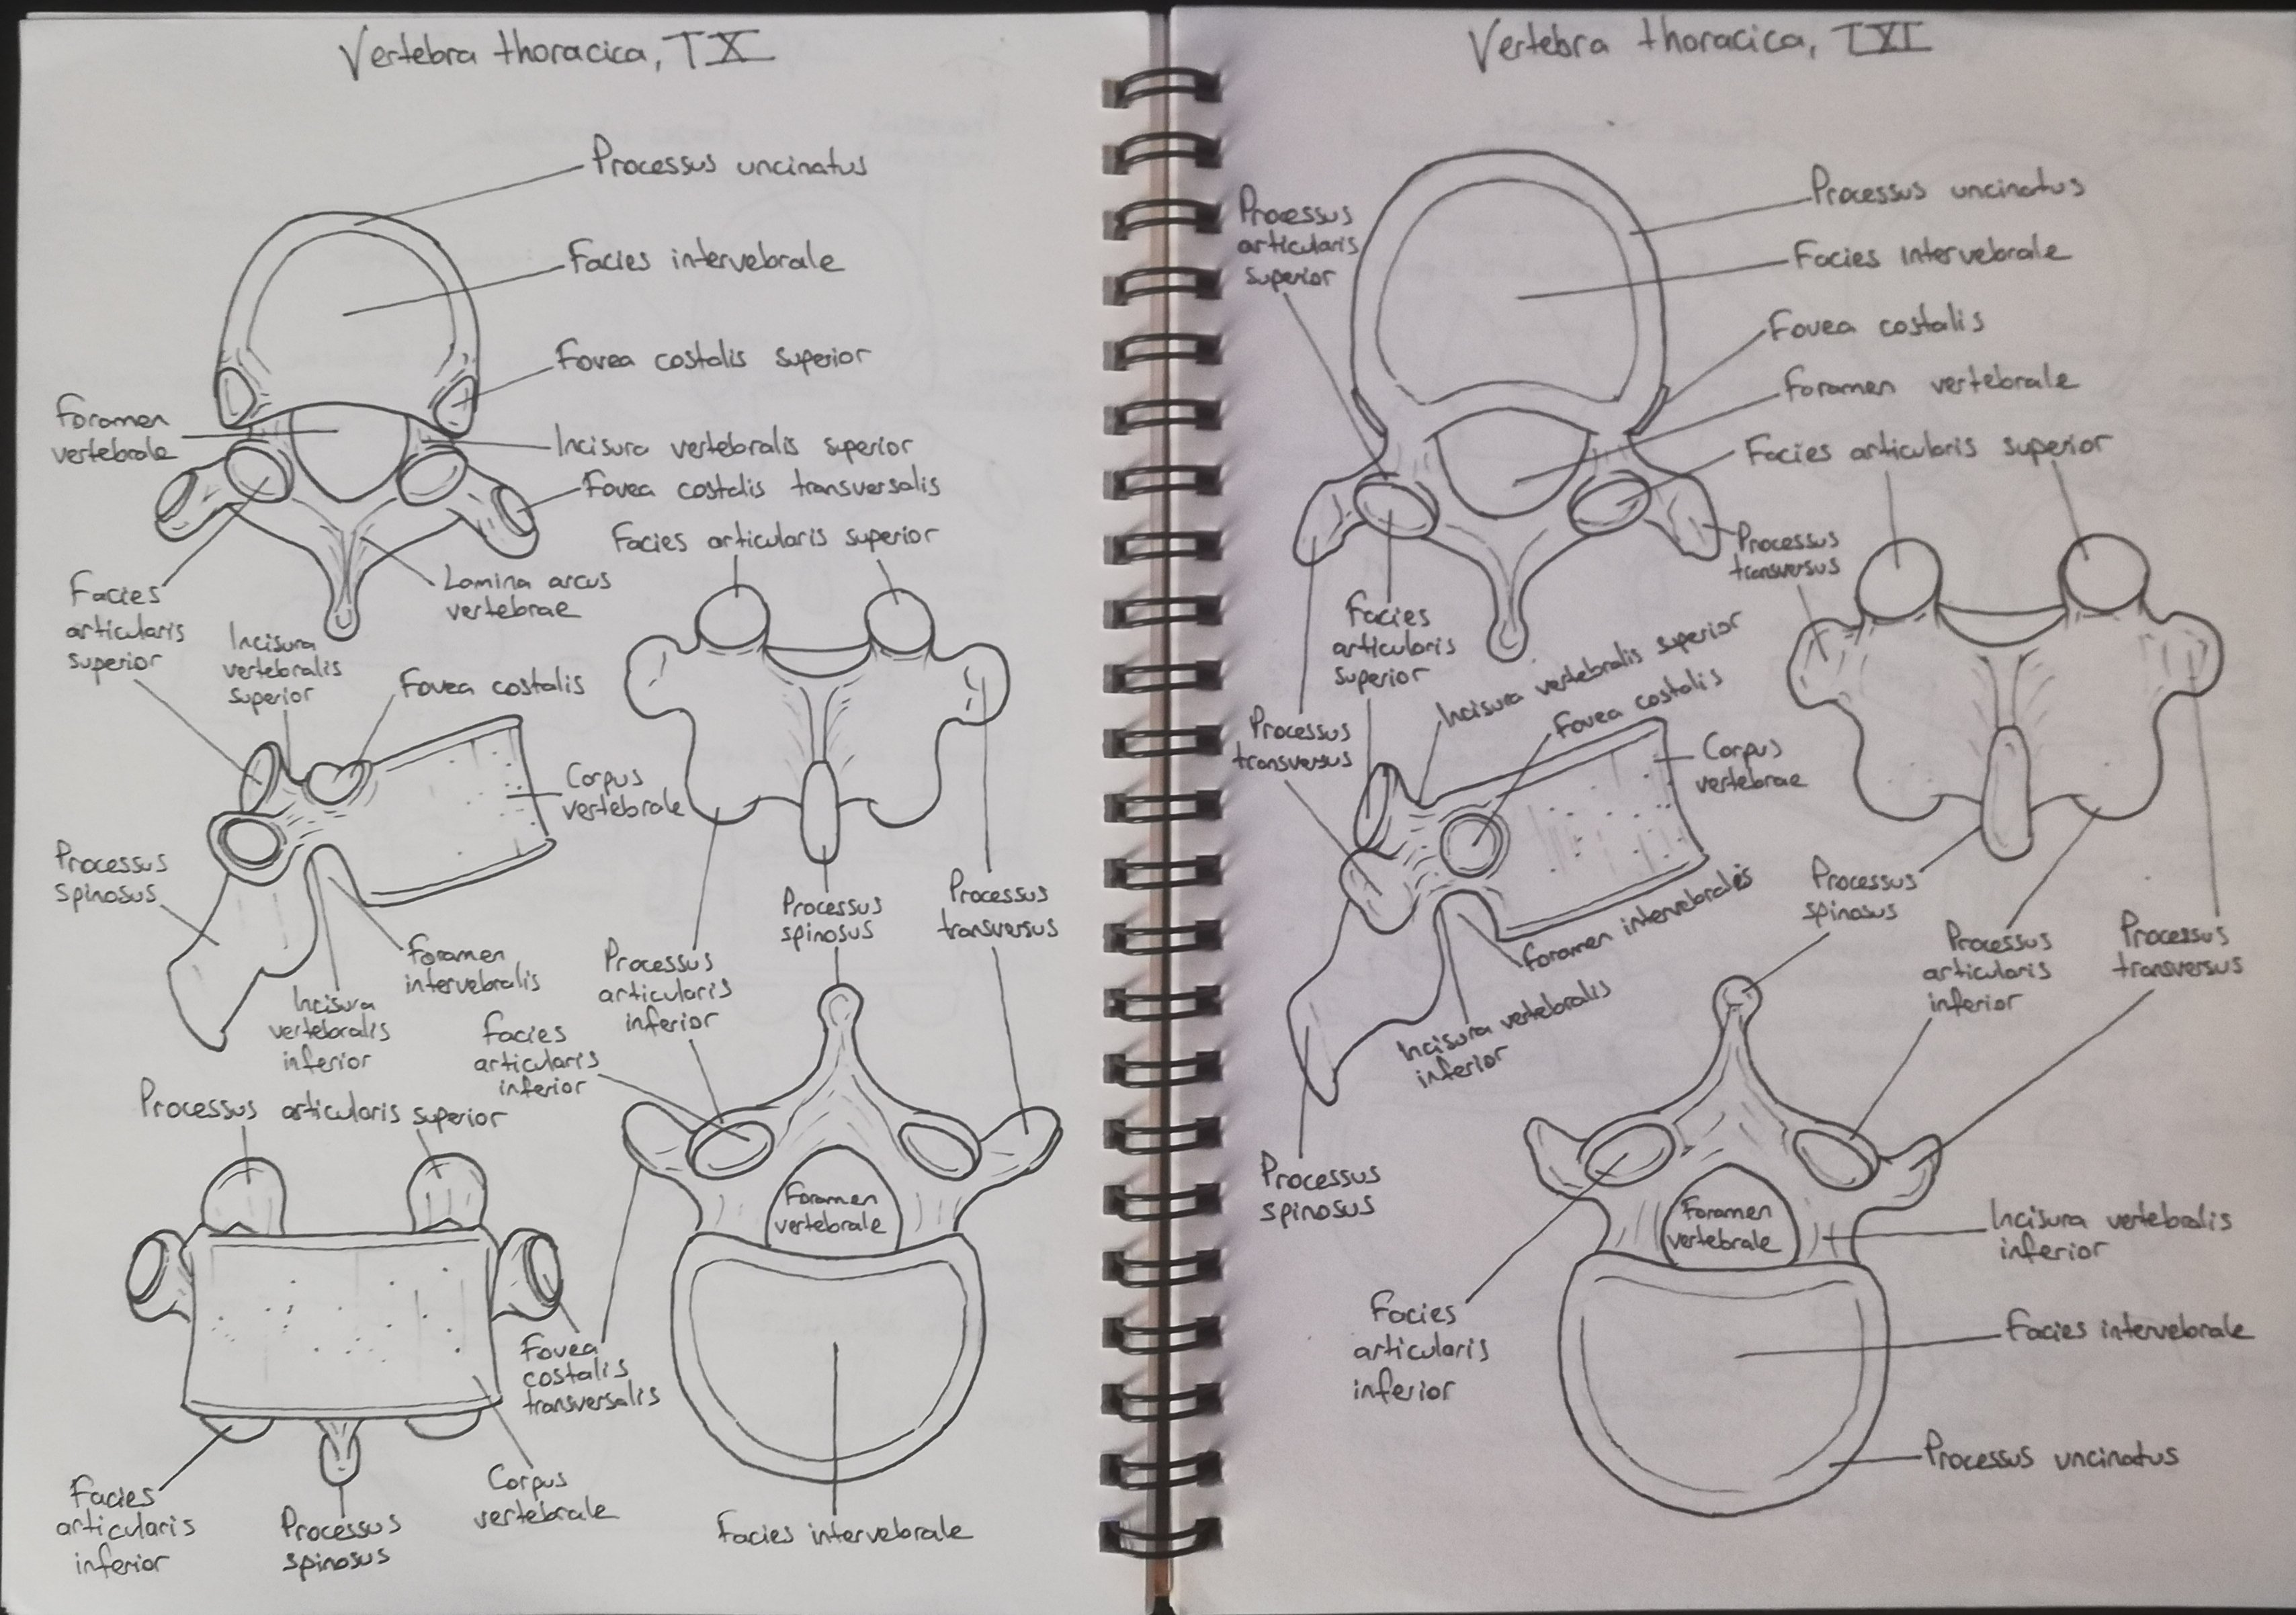 Vertebra thoracica, TX
Processus uncinatus
Facies intervebrale
Fovea costalis superior
Foramen
vertebrale
Incisura vertebralis superior
Fovea costalis transversalis
Facies articularis superior
Lamina arcus
vertebrae
Facies
articularis
superior
Incisura
vertebralis
superior
Fovea costalis
Corpus
vertebrale
Processus
spinosus
Foramen
intervebralis
Incisura
vertebralis
inferior
Processus
spinosus
Processus
transversus
Processus
articularis
inferior
Facies
articularis
inferior
Processus articularis superior
Foramen
vertebrale
Fovea
costalis
transversalis
Corpus
vertebrale
Facies
articularis
inferior
Processus
spinosus
Facies intervebrale
Vertebra thoracica, TXI
Processus
articularis
superior
Processus uncinatus
Facies intervebrale
Fovea costalis
Foramen vertebrale
Facies articularis superior
Processus
transversus
Facies
articularis
superior
Incisura vertebralis superior
Fovea costalis
Processus
transversus
Corpus
vertebrae
Foramen intervebralis
Incisura vertebralis
inferior
Processus
spinosus
Processus
articularis
inferior
Processus
transversus
Processus
spinosus
Foramen
vertebrale
Incisura vertebralis
inferior
Facies
articularis
inferior
Facies intervebrale
Processus uncinatus